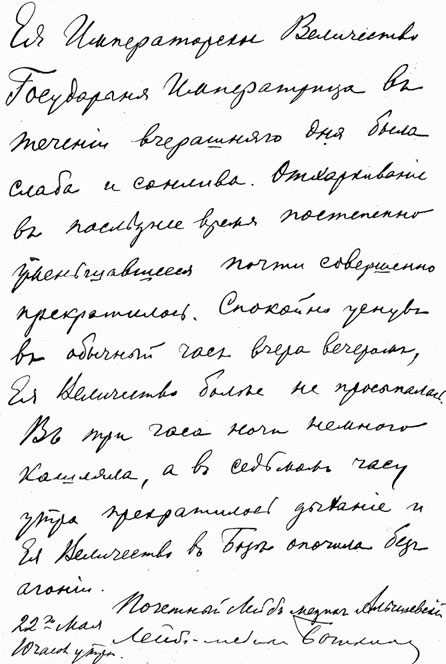 Ея Императорское Величество
Государыня Императрица въ
теченіи вчерашняго дня была
слаба и сонлива. Отхаркиваніе
въ послѣднее время постепенно
уменьшавшееся почти совершенно
прекратилось. Спокойно уснувъ
въ обычный часъ вчера вечеромъ,
Ея Величество болѣе не просыпалась.
Въ три часа ночи немного
кашляла, а въ седьмомъ часу
утра прекратилось дыханіе и
Ея Величество въ Бозѣ опочила безъ
агоніи.
Почетный Лейбъ медикъ Алышевскій
22го Мая Лейбъ-медикъ Боткинъ
10 часовъ утра.